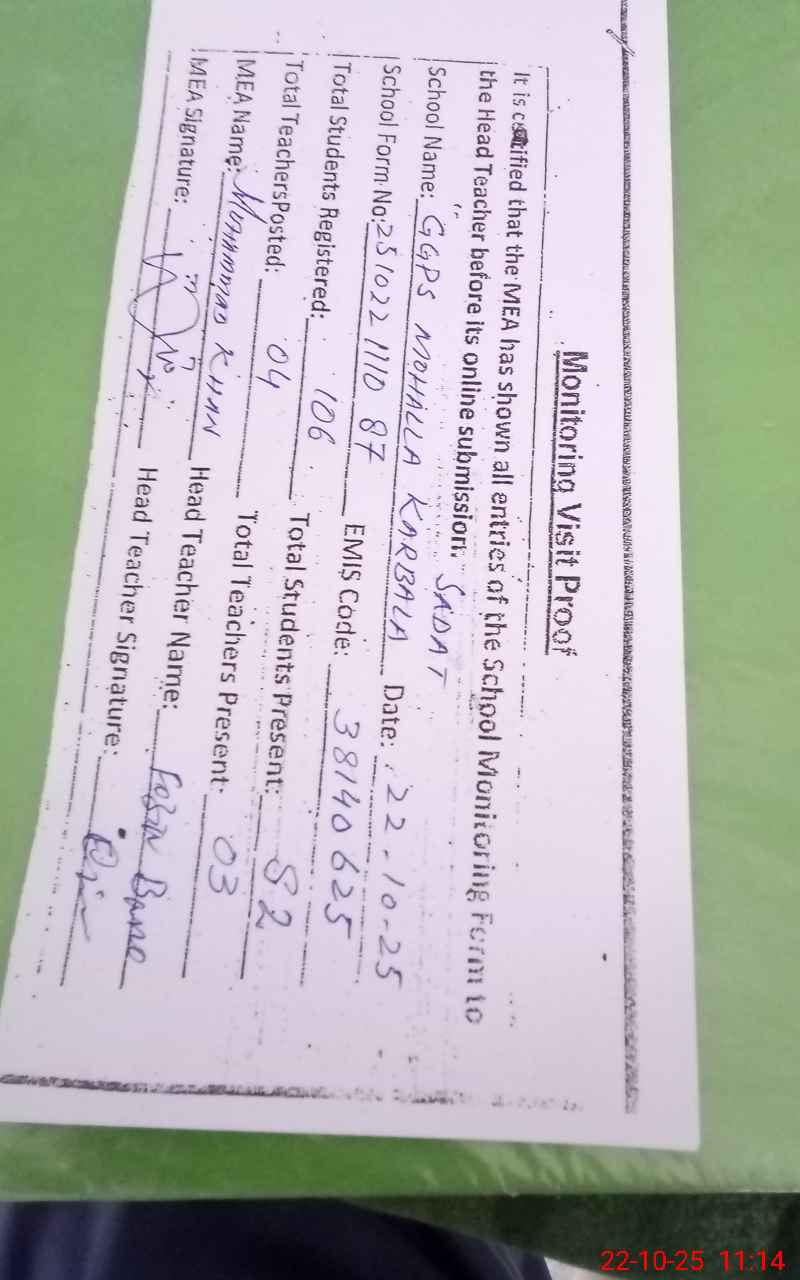 Monitoring Visit Proof
It is certified that the MEA has shown all entries of the School Monitoring Form to
the Head Teacher before its online submission.
SADAT
School Name: GGPS MOHALLA KARBALA Date: 22-10-25
School Form No: 251022 1110 87 EMIS Code: 38140625
Total Students Registered: 106 Total Students Present: 82
Total Teachers Posted: 04 Total Teachers Present: 03
MEA Name: MUHAMMAD KHAN Head Teacher Name: Bano
MEA Signature: Head Teacher Signature:
22-10-25 11:14